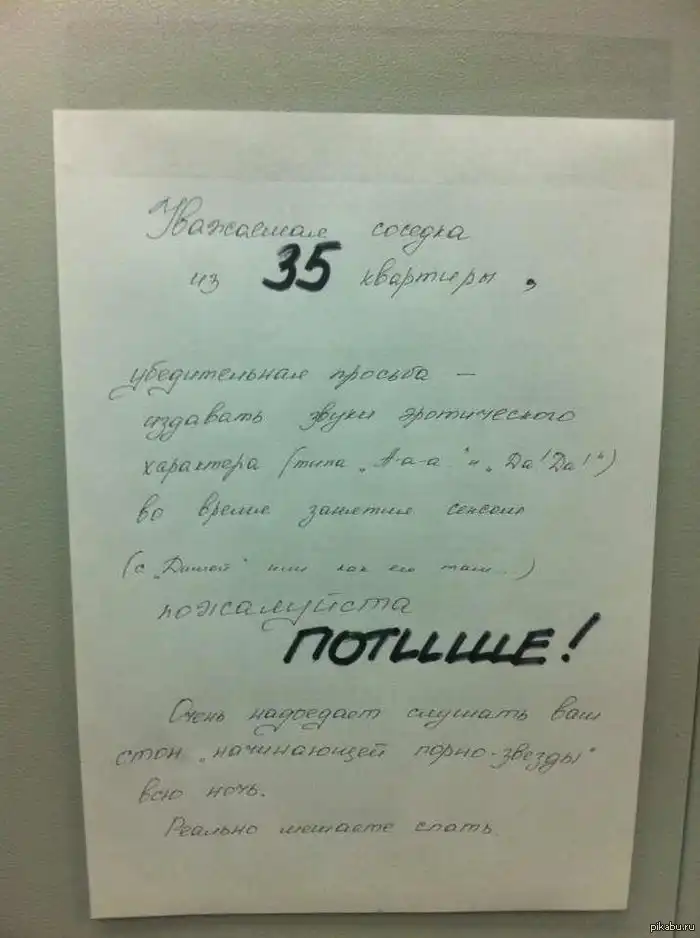 Уважаемая соседка
из 35 квартиры,
убедительная просьба —
издавать звуки эротического
характера (типа „А-а-а" и „Да! Да!")
во время занятия сексом
(с „Димой" или как его там...)
пожалуйста
ПОТИШЕ!
Очень надоедает слушать ваш
стон „начинающей порно-звезды"
всю ночь.
Реально мешаете спать.
pikabu.ru